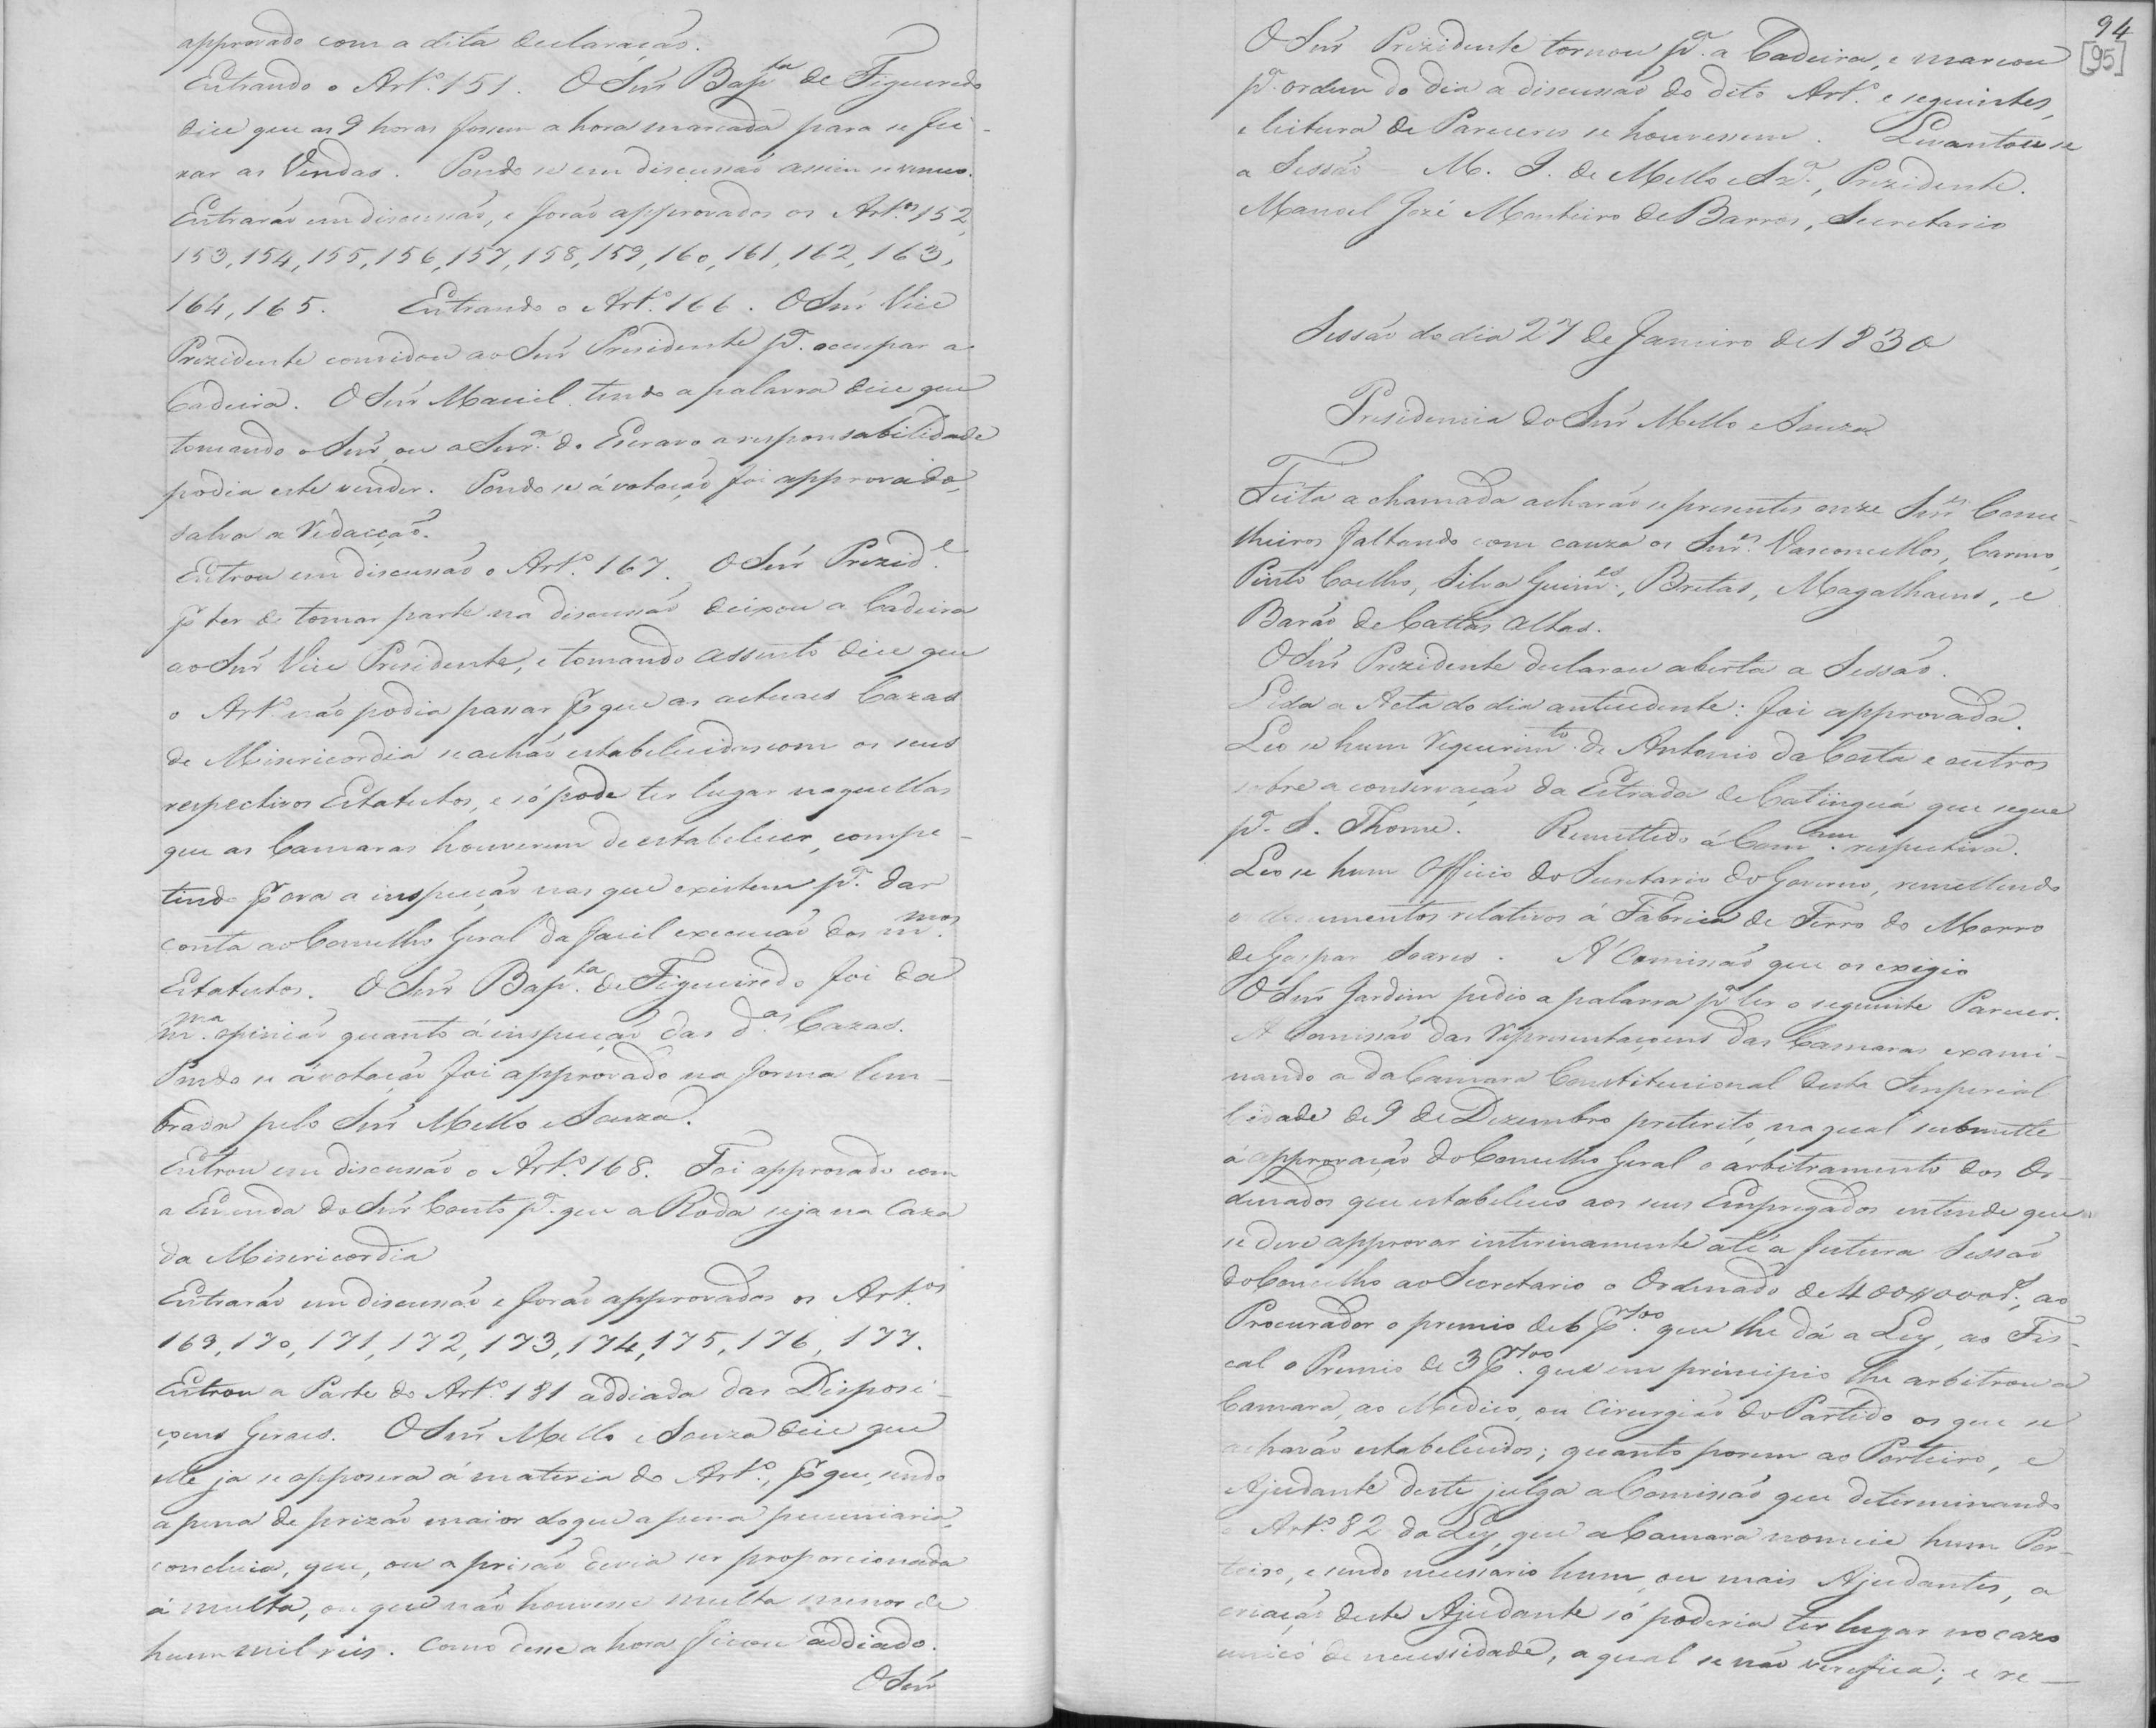 approvado com a dita declaração.
Entrando o Art.º 151. O Snr̃ Bap.ta de Figueiredo
dice que as 9 horas fossem a hora marcada para se fei-
xar as Vendas. Pondo se em discussaõ assim se venceo.
Entraraõ em discussaõ, e foraõ approvados os Art.os 152,
153, 154, 155, 156, 157, 158, 159, 160, 161, 162, 163,
164, 165. Entrando o Art.º 166. O Snr̃ Vice
Prezidente convidou ao Snr̃ Presidente p.ª occupar a
Cadeira. O Snr̃ Maciel tendo a palavra dice que
tomando o Snr̃, ou a Snr.ª do Escravo a responsabilidade
podia este vender. Pondo se á votaçaõ foi approvado,
salva a redacçaõ.
Entrou em discussaõ o Art.º 167. O Snr̃ Prezid.e
p̃ ter de tomar parte na discussaõ deixou a Cadeira
ao Snr̃ Vice Presidente, e tomando assento dice que
o Art.º naõ podia passar p̃ que as actuaes Cazas
de Misericordia se achaõ estabelecidas com os seus
respectivos Estatutos, e só pode ter lugar naquellas
que as Camaras houverem de estabelecer, compe-
tindo p̃ ora a inspecçaõ nas que existem p.ª dar
conta ao Conselho Geral da facil execuçaõ dos m.mos
Estatutos. O Snr̃ Bap.ta de Figueiredo foi da
m.ma opiniaõ quanto á inspecçaõ das d.as Cazas.
Pondo se á votaçaõ foi approvado na forma lem-
brada pelo Snr̃ Mello e Souza.
Entrou em discussaõ o Art.º 168. Foi approvado com
a Emenda do Snr̃ Couto p.ª que a Roda seja na Caza
da Misericordia
Entraraõ em discussaõ e foraõ approvados os Art.os
169, 170, 171, 172, 173, 174, 175, 176, 177.
Entrou a Parte do Art.º 181 addiada das Disposi-
çoens Geraes. O Snr̃ Mello e Souza dice que
elle ja se oppozera á materia do Art.º, p̃ que, sendo
a pena de prizaõ maior do que a pena pecuniaria,
concluia, que, ou a prisaõ devia ser proporcionada
á multa, ou que naõ houvesse multa menor de
hum mil reis. Como desse a hora ficou addiado.
O Snr̃
94
[95]
O Snr̃ Prezidente tornou p.ª a Cadeira, e marcou
p.ª ordem do dia a discussaõ do dito Art.º e seguintes,
e leitura de Pareceres se houvessem. Levantou se
a Sessaõ - M. I. de Mello e Sz.ª, Prezidente.
Manoel José Monteiro de Barros, Secretario
Sessaõ do dia 27 de Janeiro de 1830
Presidencia do Snr̃ Mello e Souza
Feita a chamada acharaõ se presentes onze Snr.es Conse-
lheiros faltando com cauza os Snr.es Vasconcellos, Carmo,
Pinto Coelho, Silva Guim.es, Bretas, Magalhaens, e
Baraõ de Cattas Altas.
O Snr̃ Prezidente declarou aberta a Sessaõ.
Lida a Acta do dia antecedente: foi approvada.
Leo se hum requerim.to de Antonio da Costa e outros
sobre a conservaçaõ da Estrada de Catinguá que segue
p.ª S. Thomé. Remettido á Com.am respectiva.
Leo se hum Officio do Secretario do Governo, remettendo
os documentos relativos á Fabrica de Ferro do Morro
de Gaspar Soares. Á Comissaõ que os exigio
O Snr̃ Jardim pedio a palavra p.ª ler o seguinte Parecer.
A Comissaõ das representaçoens das Camaras exami-
nando a da Camara Constitucional desta Imperial
Cidade de 9 de Dezembro preterito, na qual submette
á approvaçaõ do Conselho Geral o arbitramento dos Or-
denados que estabeleceo aos seus Empregados entende que
se deve approvar interinamente até a futura Sessaõ
do Conselho ao Secretario o Ordenado de 400#000 r.s, ao
Procurador o premio de 6 p.r %oo que lhe dá a Ley, ao Fis-
cal o Premio de 3 p.r %oo que em principio lhe arbitrou a
Camara, ao Medico, ou Cirurgiaõ do Partido os que se
achavaõ estabelecidos; quanto porem ao Porteiro, e
Ajudante deste julga a Comissaõ que determinando
o Art.º 82 da Ley, que a Camara nomeie hum Por-
teiro, e sendo necessario hum, ou mais Ajudantes, a
criaçaõ deste Ajudante só poderia ter lugar no cazo
unico de necessidade, a qual se naõ verifica; e re-